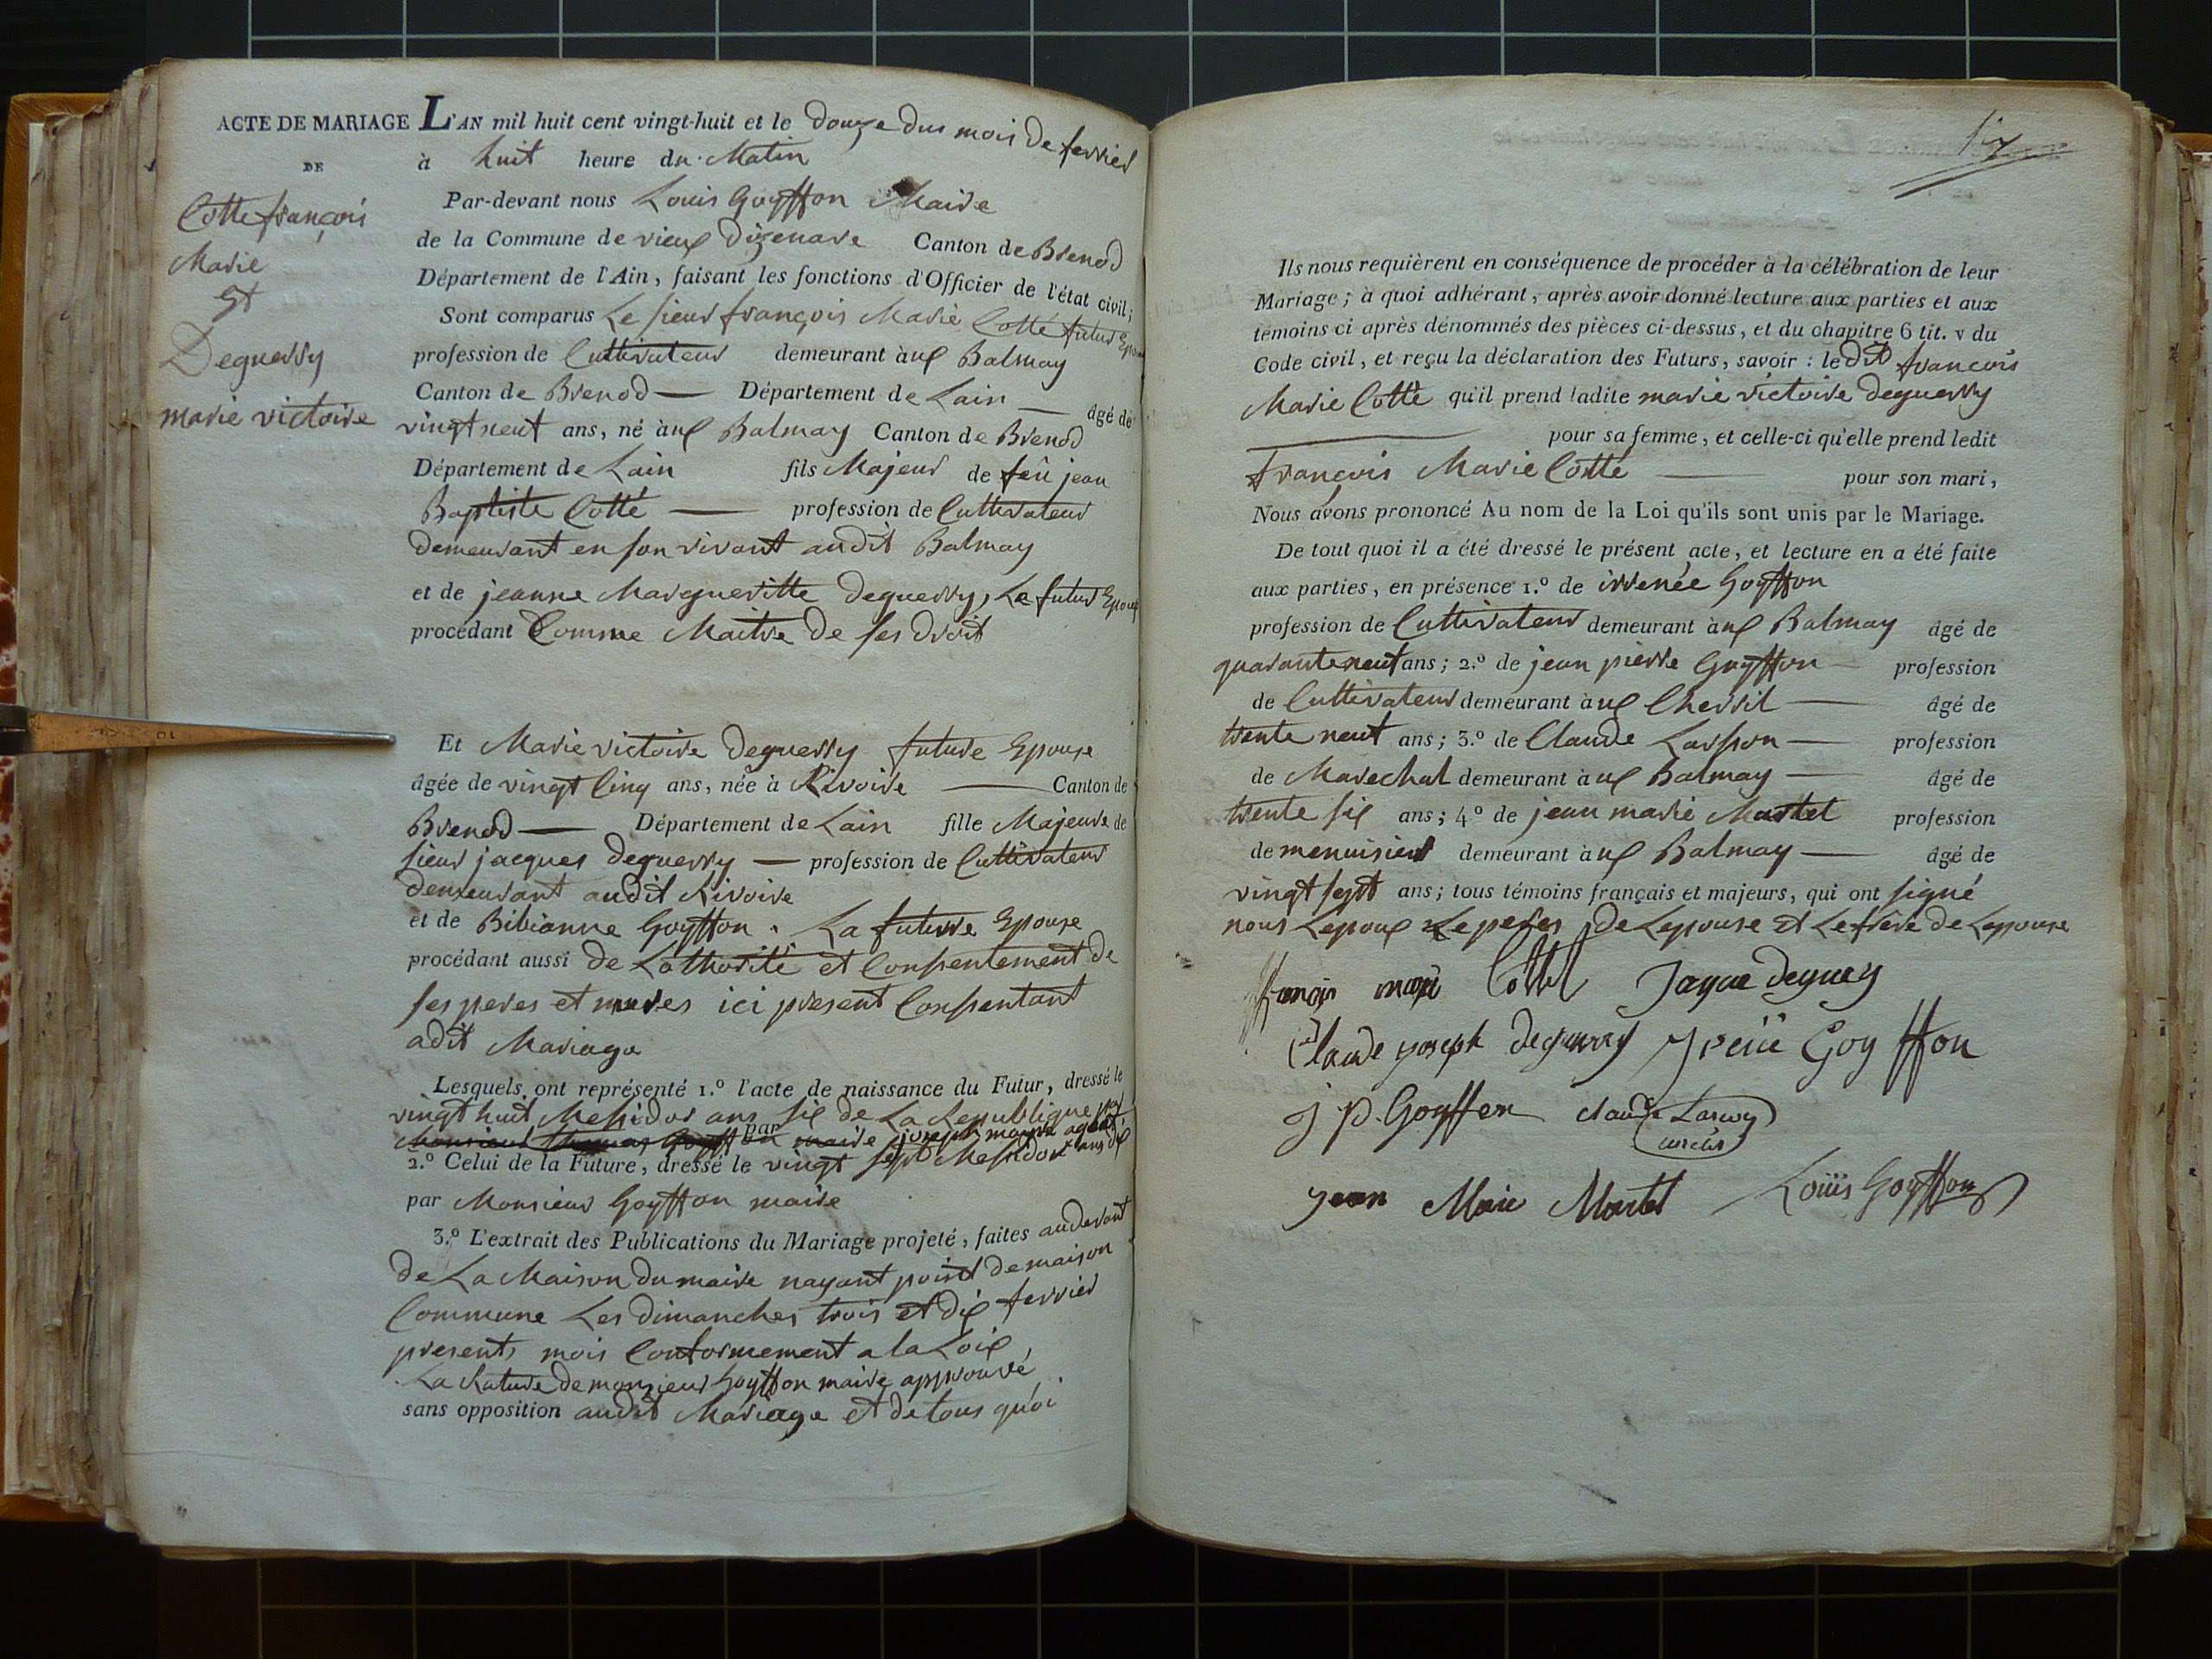 ACTE DE MARIAGE
DE
Cotte françois
Marie
Et
Deguerry
marie victoire
L'AN mil huit cent vingt-huit et le douze dus mois De fevrier
à huit heure du Matin
Par-devant nous Louis Goyffon Maire
de la Commune de vieux Dizenave Canton de Brenod
Département de l'Ain, faisant les fonctions d'Officier de l'état civil;
Sont comparus Le sieur françois Marie Cotte futur Epoux
profession de Cultivateur demeurant à ux Balmay
Canton de Brenod Département de Lain âgé de
vingt neuf ans, né à ux Balmay Canton de Brenod
Département de Lain fils Majeur de feû jean
Baptiste Cotté profession de Cultivateur
demeurant en son vivant audit Balmay
et de jeanne Margueritte deguerry, Le futur Epoux
procédant Comme Maitre De ses droit
Et Marie victoire deguerry future Epouse
âgée de vingt Cinq ans, née à Rivoire Canton de
Brenod Département de Lain fille Majeure de
sieur jacques deguerry profession de Cultivateur
demeurant audit Rivoire
et de Bibianne Goyffon. La future Epouse
procédant aussi de Lothorité et Consentement de
ses peres et meres ici present Consentant
adit Mariage
Lesquels ont représenté 1.º l'acte de naissance du Futur, dressé le
vingt huit Messidor ans six de La Republique par
Monsieur Thomas Goyffon maire par joseph agent
2.º Celui de la Future, dressé le vingt sept Messidor ans dix
par Monsieur Goyffon maire
3.º L'extrait des Publications du Mariage projeté, faites audevant
de La Maison du maire nayant point de maison
Commune Les dimanches trois et dix fevrier
presents mois Conformement a la Loix
La Rature de monsieur Goyffon maire approuvé
sans opposition audit Mariage et de tous quoi
Ils nous requièrent en conséquence de procéder à la célébration de leur
Mariage; à quoi adhérant, après avoir donné lecture aux parties et aux
témoins ci après dénommés des pièces ci-dessus, et du chapitre 6 tit. v du
Code civil, et reçu la déclaration des Futurs, savoir: le Dit francois
Marie Cotte qu'il prend ladite marie victoire deguerry
pour sa femme, et celle-ci qu'elle prend ledit
francois Marie Cotté pour son mari,
Nous avons prononcé Au nom de la Loi qu'ils sont unis par le Mariage.
De tout quoi il a été dressé le présent acte, et lecture en a été faite
aux parties, en présence 1.º de irrenée Goyffon
profession de Cultivateur demeurant à ux Balmay âgé de
quarante neuf ans; 2.º de jean pierre Goyffon profession
de Cultivateur demeurant à ux Chevril âgé de
trente neuf ans; 3.º de Claude Larson profession
de Marechal demeurant à ux Balmay âgé de
trente six ans; 4.º de jean marie Martel profession
de menuisier demeurant à ux Balmay âgé de
vingt sept ans; tous témoins français et majeurs, qui ont signé
nous Lepoux Le peres de Lepouse et Le frere de Lepouse
Jaque deguery
Claude joseph deguerry Goyffon
J p. Goyffon claude
jean Marie Martel Louis Goyffon